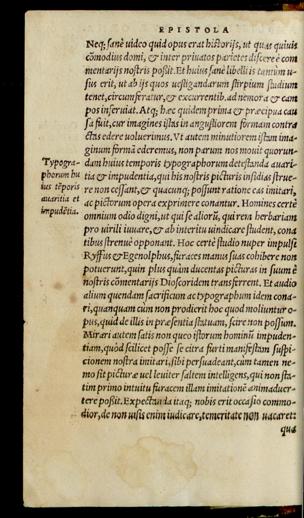 EPISTOLA
Neq; sanè uideo quid opus erat historijs, ut quas quiuis
cõmodius domi, & inter priuatos parietes discere è com
mentarijs nostris possit. Et huius sanè libelli is tantùm u-
sus erit, ut ab ijs quos uestigandarum stirpium studium
tenet, circumferatur, & excurrentib. ad nemora & cam
pos inseruiat. Atq; hæc quidem prima & præcipua cau
sa fuit, cur imagines istas in angustiorem formam contra
ctas edere uoluerimus. Vt autem minutiorem istam ima-
ginum formã ederemus, non parum nos mouit quorun-
dam huius temporis typographorum detestanda auari-
tia & impudentia, qui his nostris picturis insidias strue-
re non cessant, & quacunq; possunt ratione eas imitari,
ac pictorum opera exprimere conantur. Homines certè
omnium odio digni, ut qui se alioru, qui rem herbariam
pro uirili iuuare, & ab interitu uindicare student, cona
tibus strenuè opponant. Hoc certè studio nuper impulsi
Ryffus & Egenolphus, furaces manus suas cohibere non
potuerunt, quin plus quàm ducentas picturas in suum è
nostris cõmentarijs Dioscoridem transferrent. Et audio
alium quendam sacrificum ac typographum idem cona-
ri, quanquam cùm non prodierit hoc quod moliuntur o-
pus, quid de illis in præsentia statuam, scire non possum.
Mirari autem satis non queo istorum hominũ impuden-
tiam, quòd scilicet posse se citra furti manifestam suspi-
cionem nostra imitari, sibi persuadeant, cùm tamen ne-
mo sit picturæ uel leuiter saltem intelligens, qui non sta-
tim primo intuitu furacem illam imitationẽ animaduer-
tere possit. Expectanda itaq; nobis erit occasio commo-
dior, de non uisis enim iudicare, temeritate non uacaret:
quæ
Typogra-
phorum hu
ius tẽporis
auaritia et
impudẽtia.